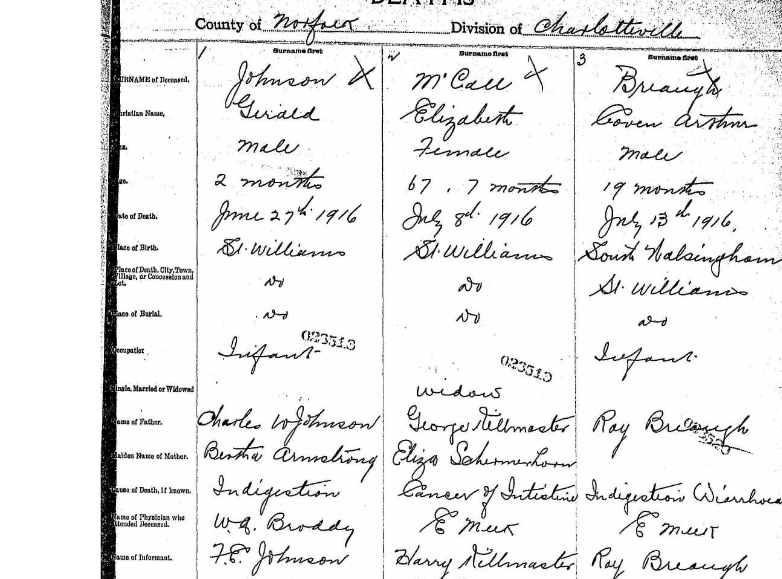 DEATHS
County of Norfolk Division of Charlotteville
1 Surname first 2 Surname first 3 Surname first
SURNAME of Deceased. Johnson X McCall X Breaugh X
Christian Name, Gerald Elizabeth Coven Arthur
Sex. Male Female Male
Age. 2 months 67, 7 months 19 months
Date of Death. June 27th 1916 July 8th 1916 July 13th 1916,
Place of Birth. St. Williams St. Williams South Walsingham
Place of Death, City, Town, Village, or Concession and Lot. do do St. Williams
Place of Burial. do do do
Occupation Infant Infant
023513 023513
Single, Married or Widowed widow
Name of Father. Charles W Johnson George Killmaster Roy Breaugh
Maiden Name of Mother. Bertha Armstrong Eliza Schermerhorn
Cause of Death, if known. Indigestion Cancer of Intistine Indigestion Diarrhoea
Name of Physician who attended Deceased. W.A. Broddy E Meek E Meek
Name of Informant. F.E. Johnson Harry Killmaster Roy Breaugh